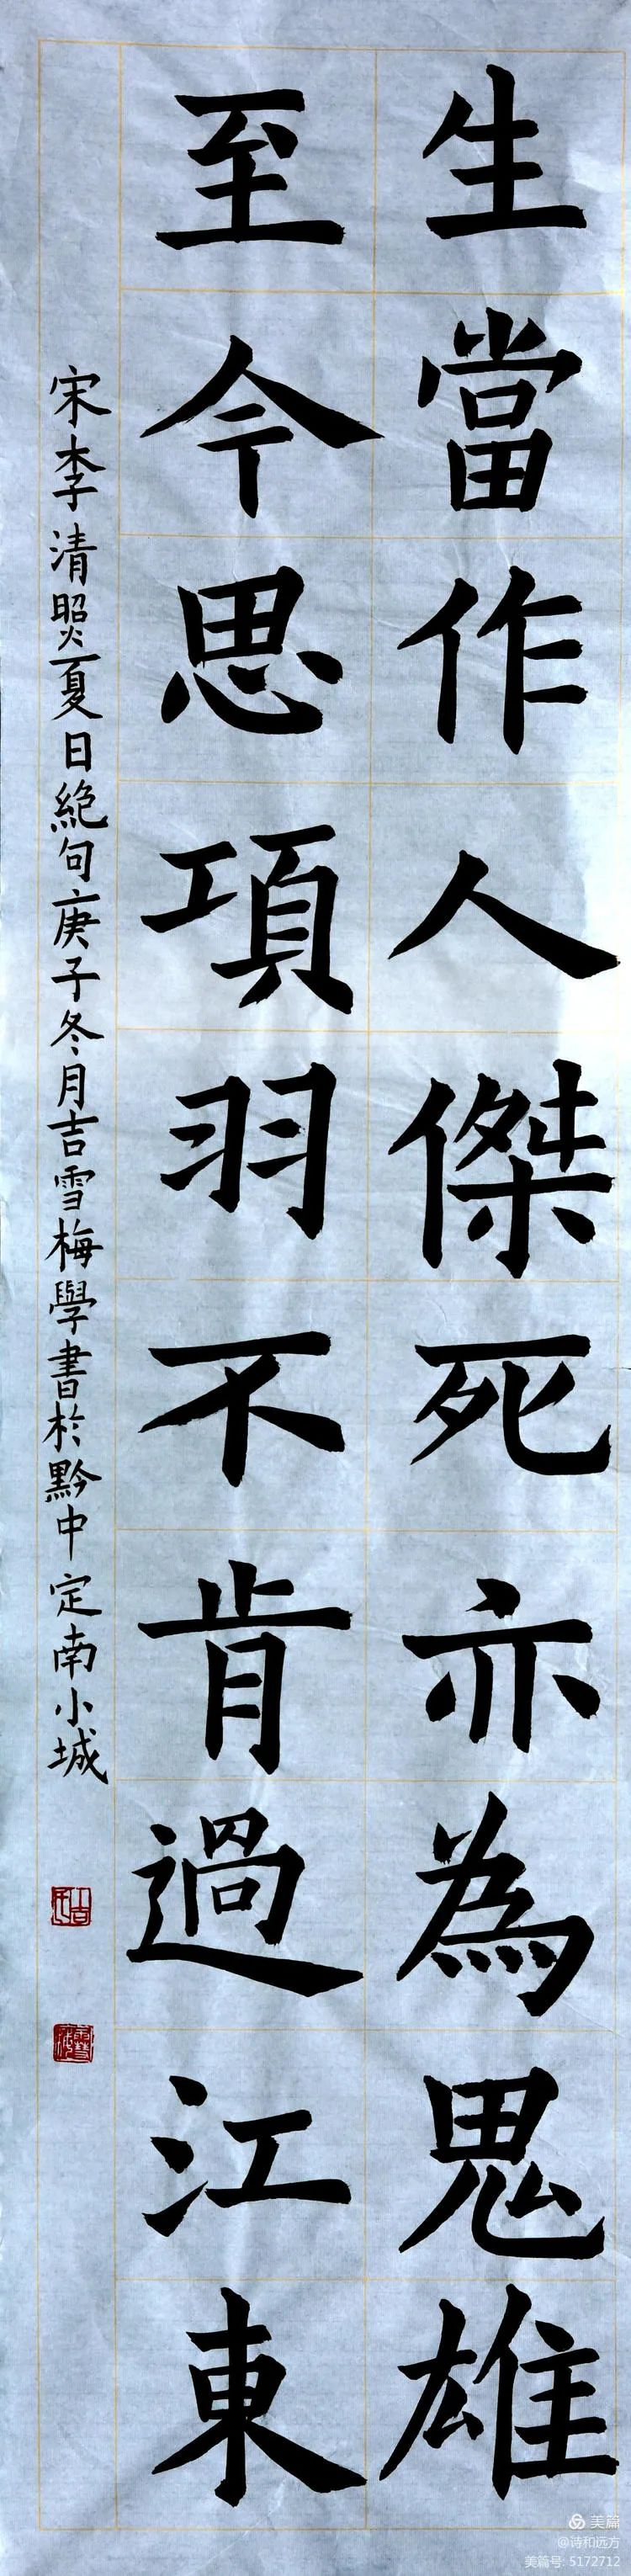 生當作人傑死亦為鬼雄
至今思項羽不肯過江東
宋李清照夏日絶句庚子冬月吉雪梅學書於黔中定南小城
美篇
@诗和远方
美篇号: 5172712